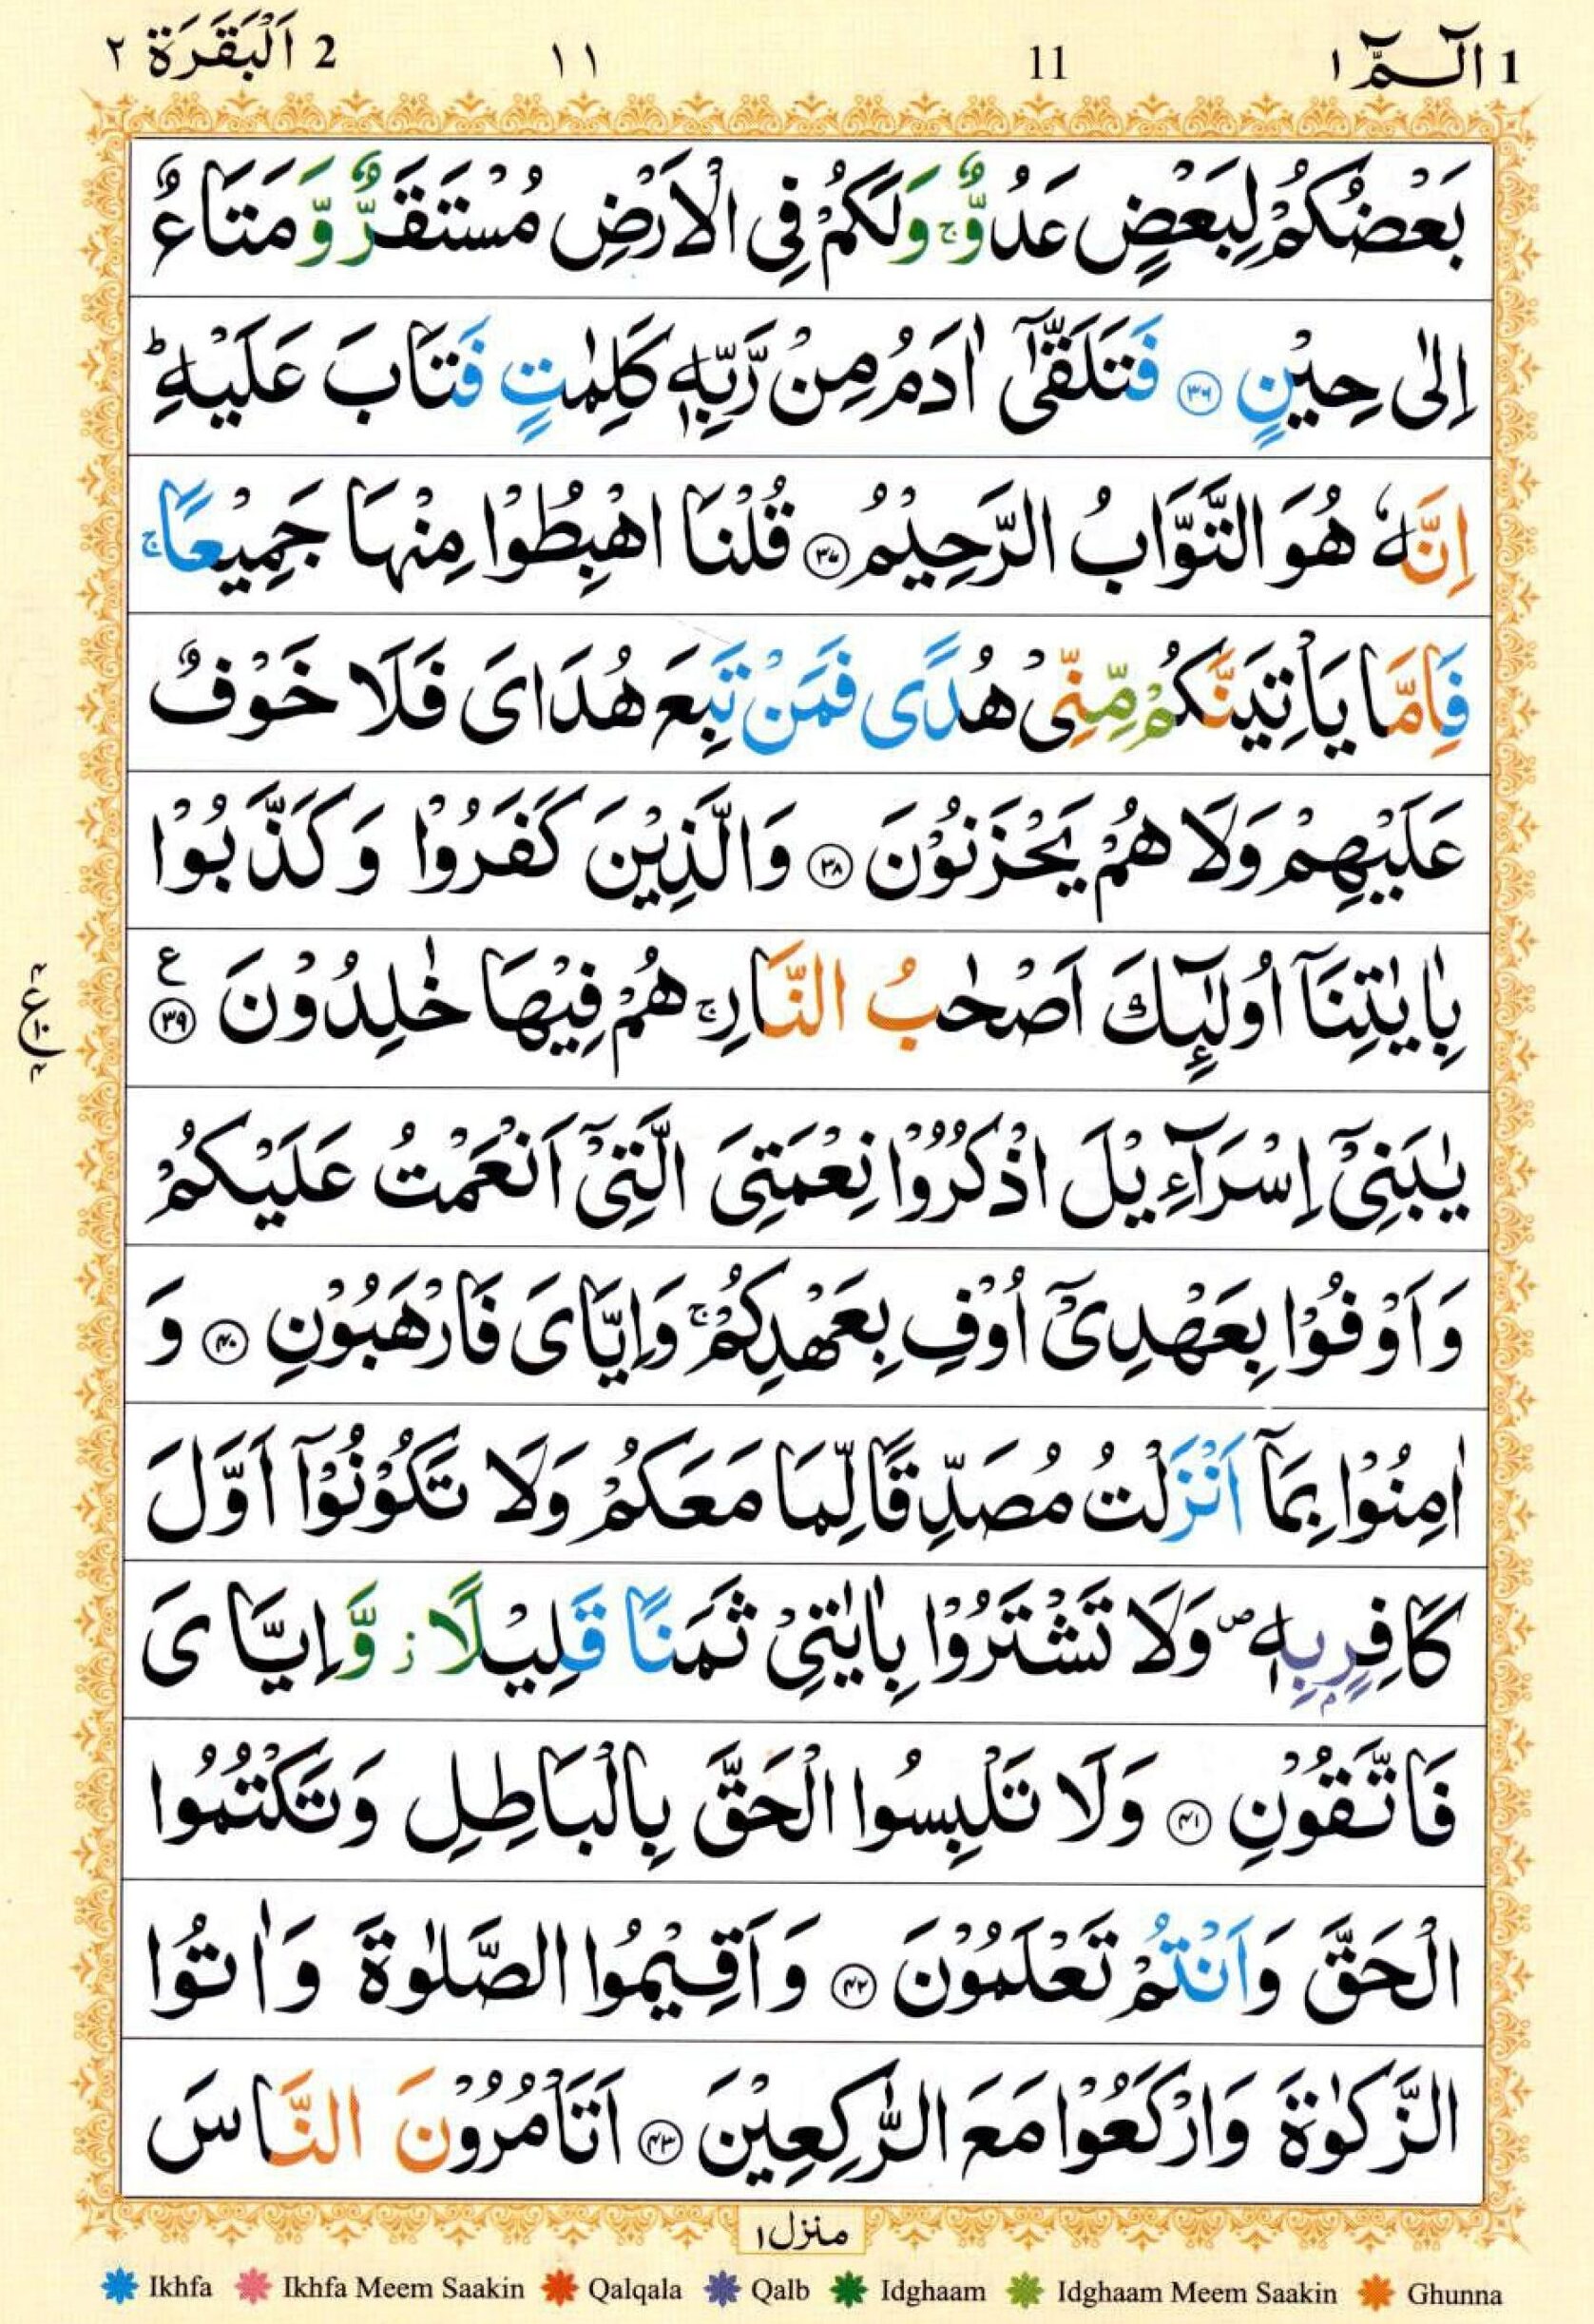 1 الٓـمّٓ ١ 11 ١١ 2 اَلْبَقَرَة ٢
بَعْضُكُمْ لِبَعْضٍ عَدُوٌّ ۚ وَلَكُمْ فِى الْاَرْضِ مُسْتَقَرٌّ وَّمَتَاعٌ
اِلٰى حِيْنٍ ﴿۳۶﴾ فَتَلَقّٰٓى اٰدَمُ مِنْ رَّبِّهٖ كَلِمٰتٍ فَتَابَ عَلَيْهِ ؕ
اِنَّهٗ هُوَ التَّوَّابُ الرَّحِيْمُ ﴿۳۷﴾ قُلْنَا اهْبِطُوْا مِنْهَا جَمِيْعًا ۚ
فَاِمَّا يَاْتِيَنَّكُمْ مِّنِّىْ هُدًى فَمَنْ تَبِعَ هُدَاىَ فَلَا خَوْفٌ
عَلَيْهِمْ وَلَا هُمْ يَحْزَنُوْنَ ﴿۳۸﴾ وَالَّذِيْنَ كَفَرُوْا وَكَذَّبُوْا
بِاٰيٰتِنَآ اُولٰٓئِكَ اَصْحٰبُ النَّارِ ۚ هُمْ فِيْهَا خٰلِدُوْنَ ﴿۳۹﴾ ع
يٰبَنِىْٓ اِسْرَآءِيْلَ اذْكُرُوْا نِعْمَتِىَ الَّتِىْٓ اَنْعَمْتُ عَلَيْكُمْ
وَاَوْفُوْا بِعَهْدِىْٓ اُوْفِ بِعَهْدِكُمْ ۚ وَاِيَّاىَ فَارْهَبُوْنِ ﴿۴۰﴾ وَ
اٰمِنُوْا بِمَآ اَنْزَلْتُ مُصَدِّقًا لِّمَا مَعَكُمْ وَلَا تَكُوْنُوْٓا اَوَّلَ
كَافِرٍۭ بِهٖ ۪ وَلَا تَشْتَرُوْا بِاٰيٰتِىْ ثَمَنًا قَلِيْلًا ز وَّاِيَّاىَ
فَاتَّقُوْنِ ﴿۴۱﴾ وَلَا تَلْبِسُوا الْحَقَّ بِالْبَاطِلِ وَتَكْتُمُوا
الْحَقَّ وَاَنْتُمْ تَعْلَمُوْنَ ﴿۴۲﴾ وَاَقِيْمُوا الصَّلٰوةَ وَاٰتُوا
الزَّكٰوةَ وَارْكَعُوْا مَعَ الرّٰكِعِيْنَ ﴿۴۳﴾ اَتَاْمُرُوْنَ النَّاسَ
منزل ١
Ikhfa Ikhfa Meem Saakin Qalqala Qalb Idghaam Idghaam Meem Saakin Ghunna